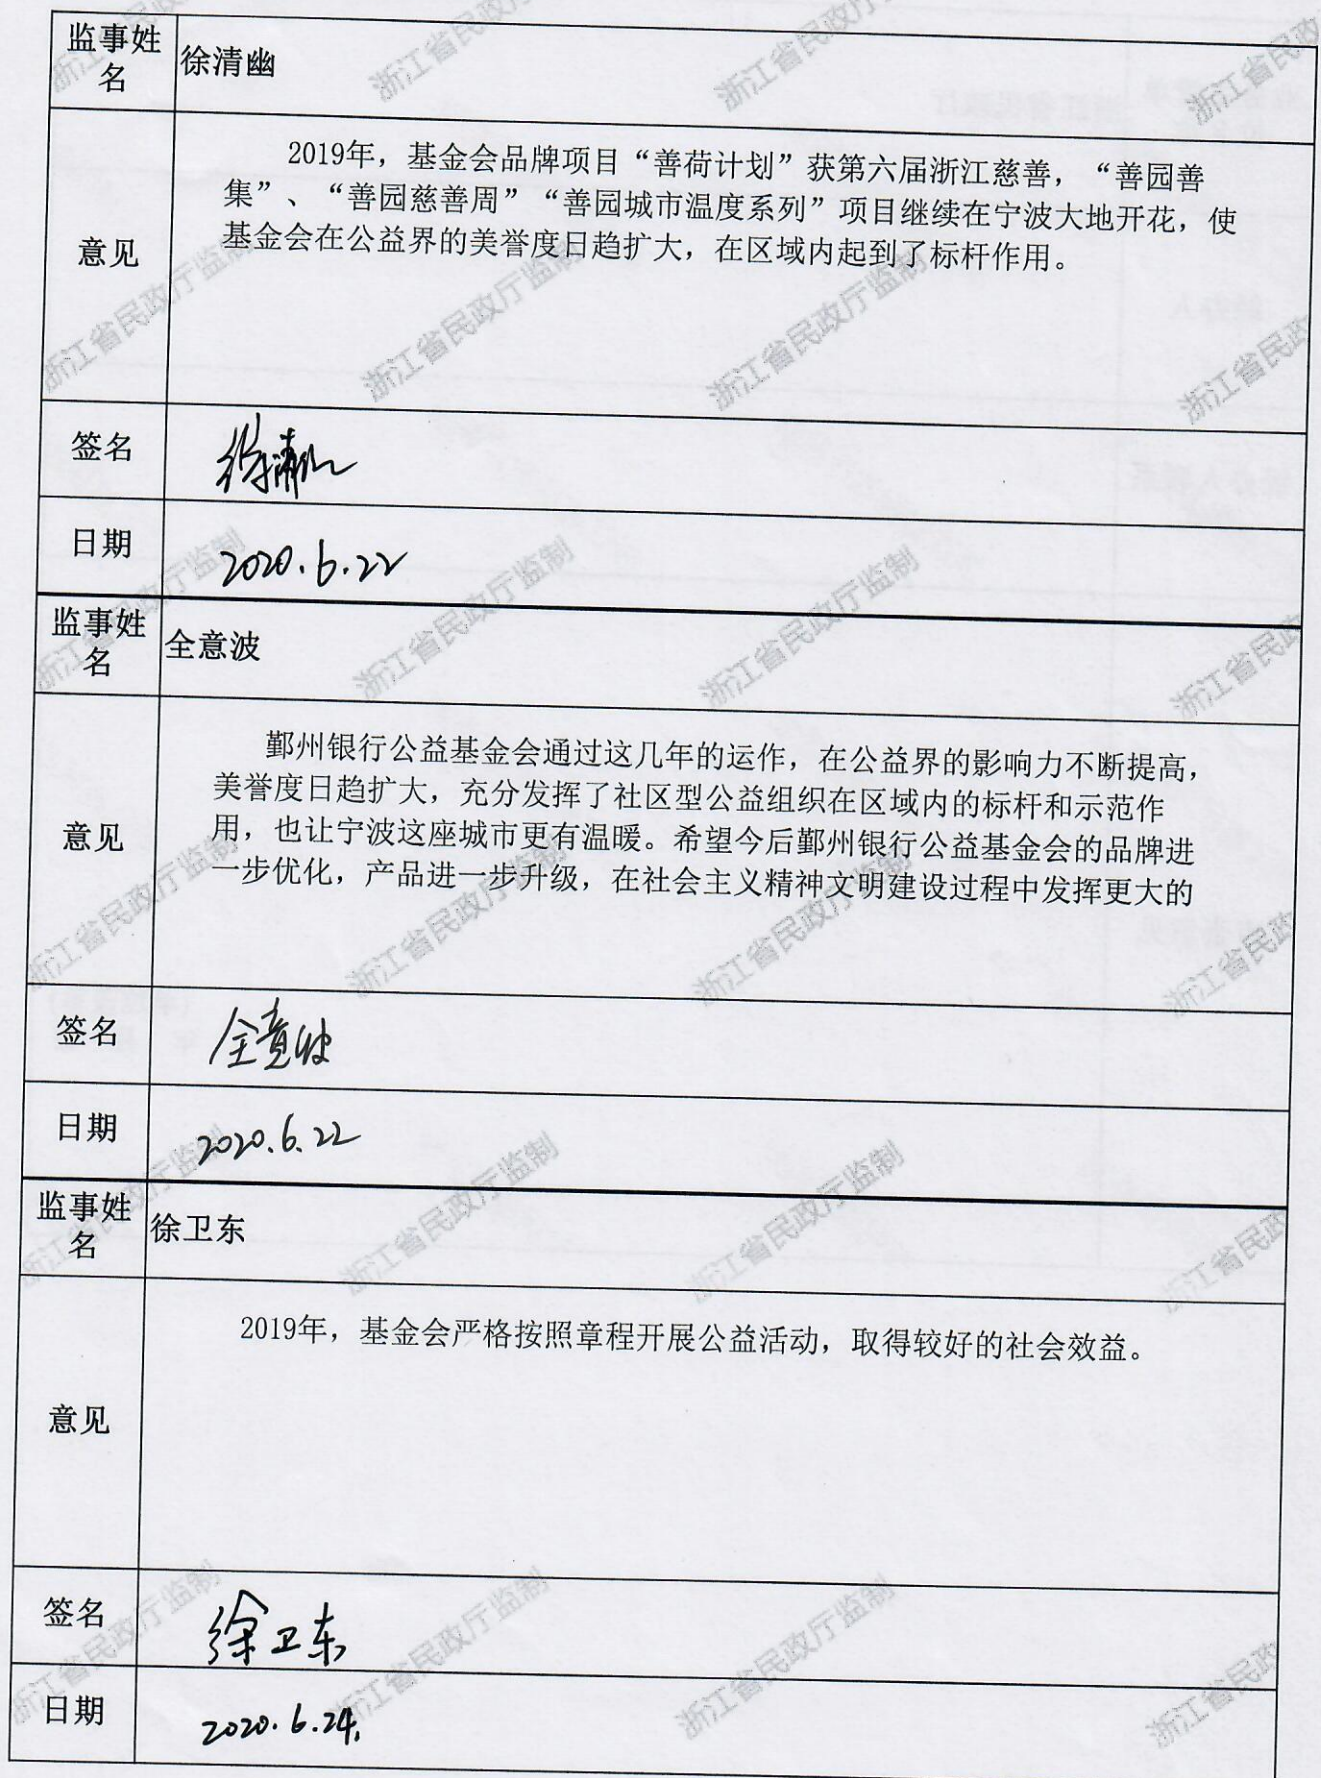 监事姓
名
徐清幽
意见
2019年，基金会品牌项目“善荷计划”获第六届浙江慈善，“善园善
集”、“善园慈善周”“善园城市温度系列”项目继续在宁波大地开花，使
基金会在公益界的美誉度日趋扩大，在区域内起到了标杆作用。
签名
徐清幽
日期
2020.6.22
监事姓
名
全意波
意见
鄞州银行公益基金会通过这几年的运作，在公益界的影响力不断提高，
美誉度日趋扩大，充分发挥了社区型公益组织在区域内的标杆和示范作
用，也让宁波这座城市更有温暖。希望今后鄞州银行公益基金会的品牌进
一步优化，产品进一步升级，在社会主义精神文明建设过程中发挥更大的
签名
全意波
日期
2020.6.22
监事姓
名
徐卫东
意见
2019年，基金会严格按照章程开展公益活动，取得较好的社会效益。
签名
徐卫东
日期
2020.6.24.
浙江省民政厅监制